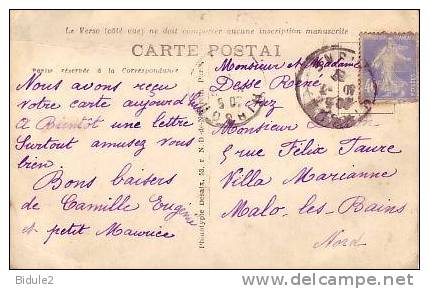 Le Verso (côté vue) ne doit comporter aucune inscription manuscrite
CARTE POSTAL
Partie réservée à la Correspondance
Nous avons reçu
Votre carte aujourd'hui
A Bientôt une lettre
Surtout amusez vous
bien.
Bons baisers
de Camille Eugène
et petit Maurice
Phototypie Desaix, 53, r. N.D.
Monsieur et Madame
Desse René
chez
Monsieur
5 rue Félix Faure
Villa Marianne
Malo-les-Bains
Nord
Bidule2
http://www.delcampe.net